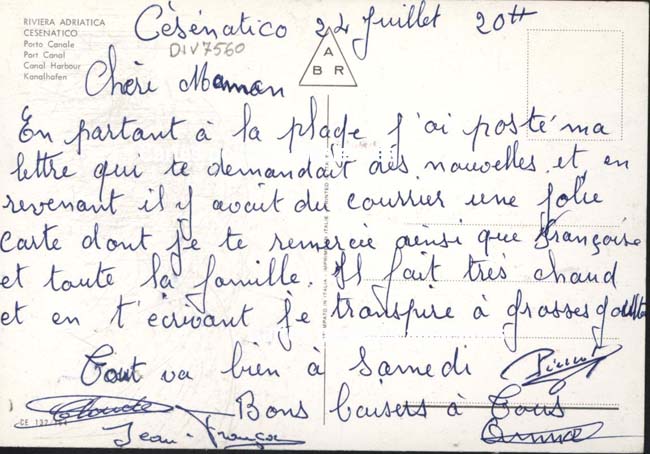 RIVIERA ADRIATICA
CESENATICO
Porto Canale
Port Canal
Canal Harbour
Kanalhafen
Césénatico 24 Juillet 20H
DIV7560
A
B R
Chère Maman
En partant à la plage j'ai posté ma
lettre qui te demandait des nouvelles et en
revenant il y avait du courrier une jolie
carte dont je te remercie ainsi que Françoise
et toute la famille. Il fait très chaud
et en t'écrivant je transpire à grosses goutte
Tout va bien à Samedi
Bons baisers à Tous
Claude
Jean-François
CE 132/